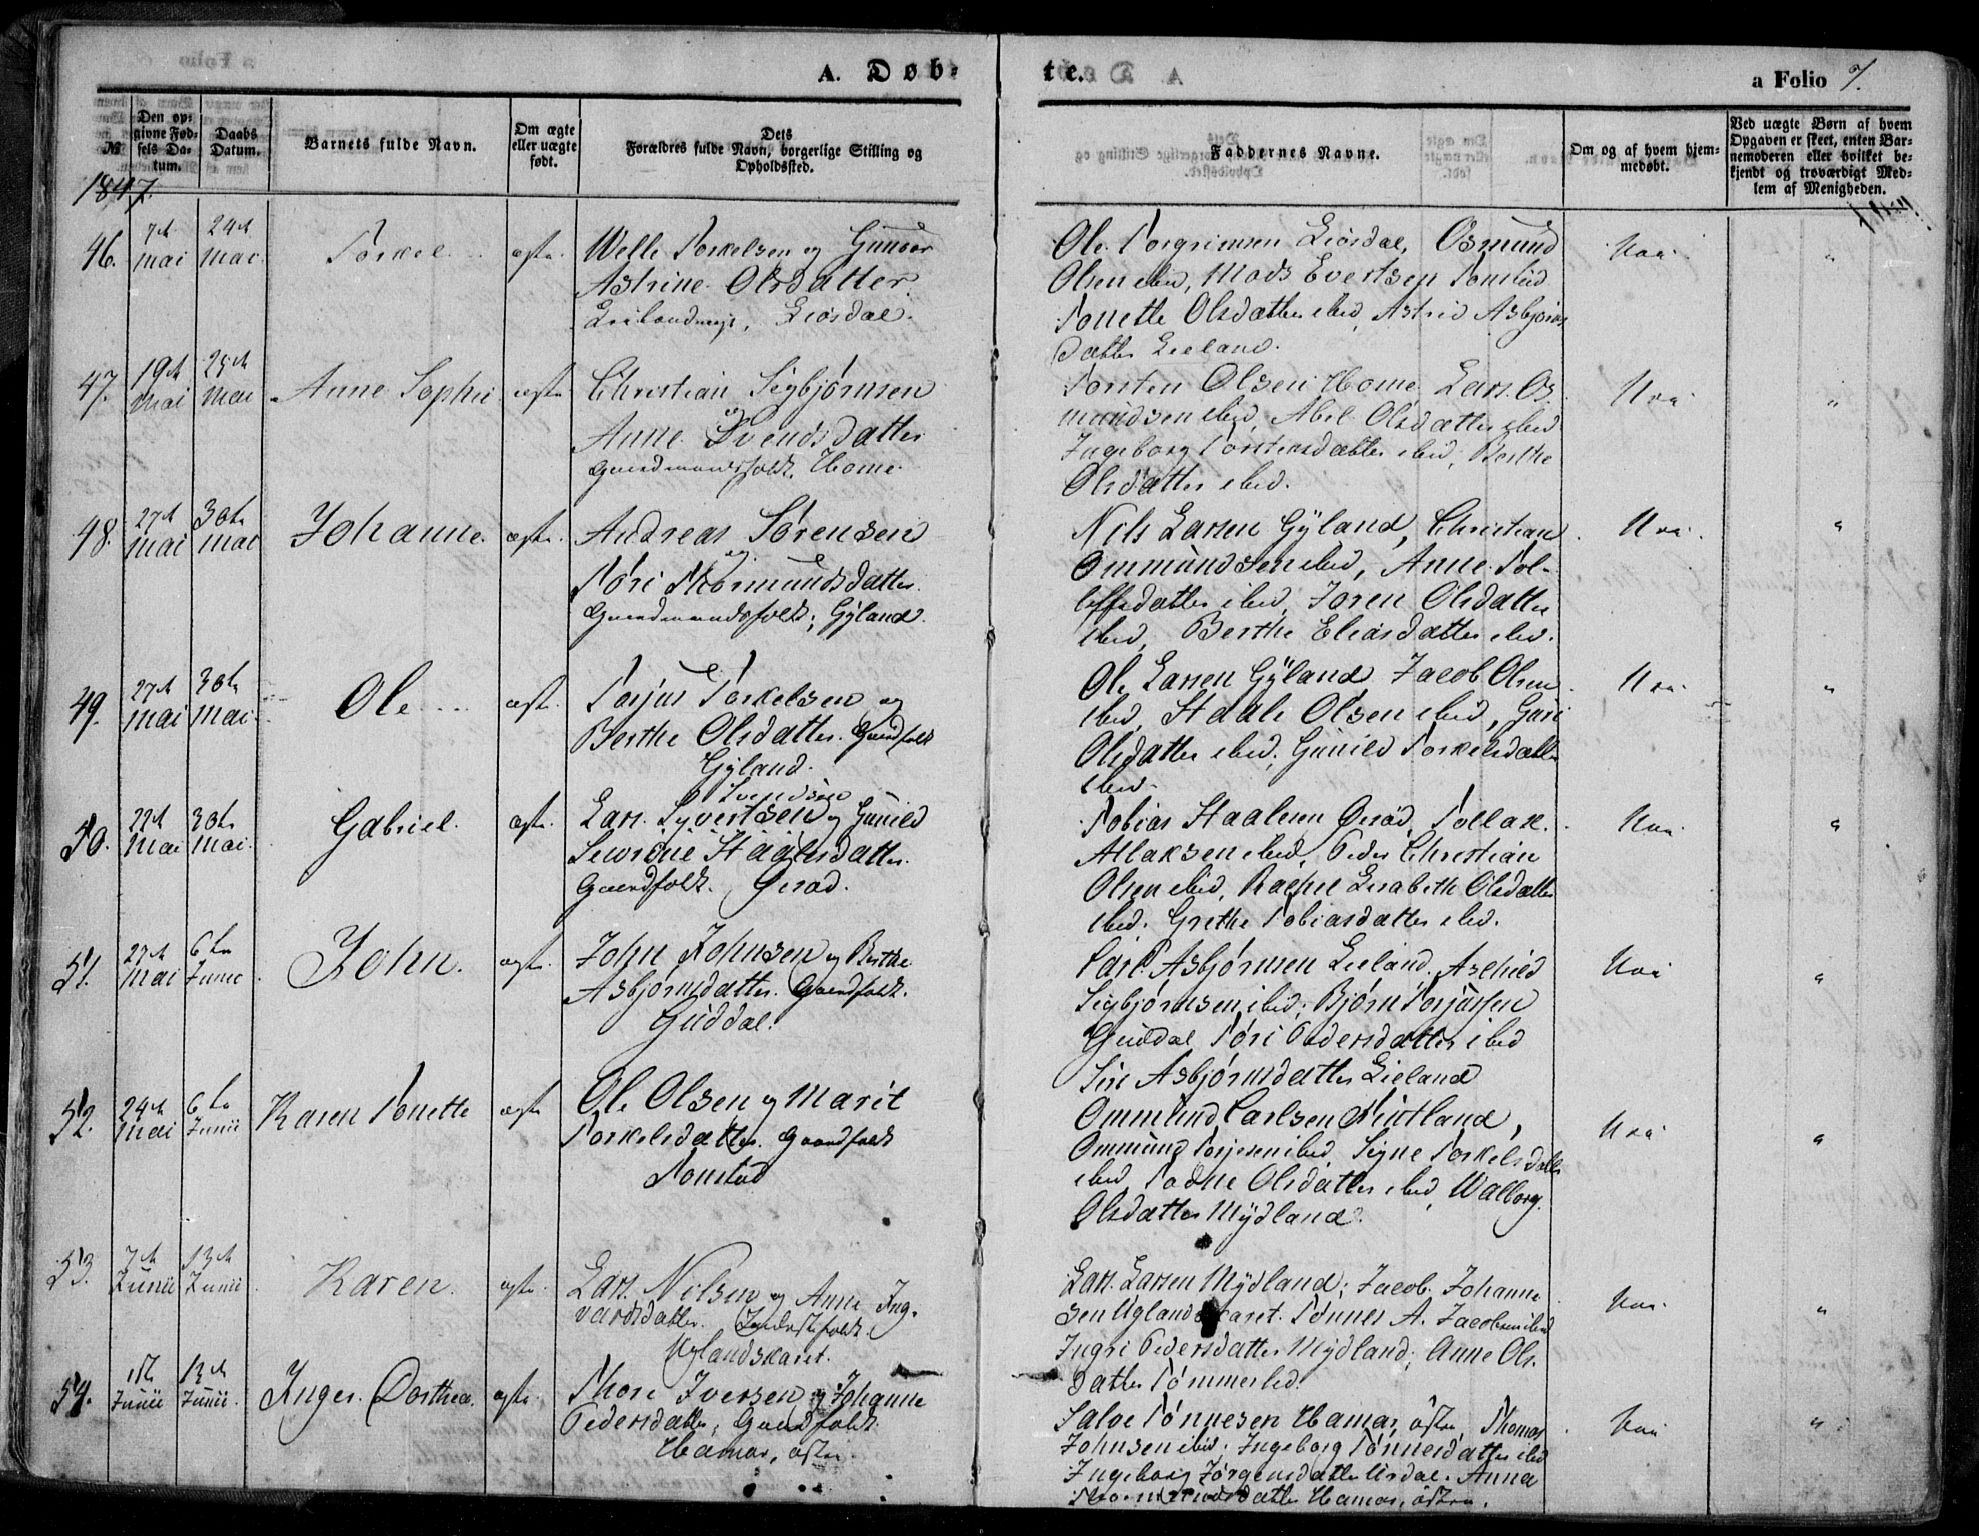 A. Døb-
te.
a Folio 7.
№
Den op-
givne Fød-
sels Da-
tum.
Daabs
Datum.
Barnets fulde Navn.
Om ægte
eller uægte
født.
Dets
Forældres fulde Navn, borgerlige Stilling og
Opholdssted.
Faddernes Navne.
Om og af hvem hjem-
medøbt.
Ved uægte Børn af hvem
Opgaven er skeet, enten Bar-
nemoderen eller hvilket be-
kjendt og troværdigt Med-
lem af Menigheden.
1847.
46.
7de
mai
24de
mai
Torkel
ægte
Welle Torkelsen og Gunvor
Astrine Olsdatter
Liøsdal.
Ole Torgrimsen Liøsdal, Osmund
Olsen ibid, Mads Evertsen
Tonette Olsdatter ibid, Astrid Asbjørns
datter Lieland.
47.
19de
mai
25de
mai
Anne Sophie
ægte
Christian Sigbjørnsen
og
Anne Svendsdatter
Gaardmandsfolk. Home.
Torsten Olsen Home, Lars Os-
mundsen ibid, Abel Olsdatter ibid
Ingeborg Torstensdatter ibid, Berthe
Olsdatter ibid.
48.
27de
mai
30te
mai
Johanne.
ægte.
Andreas Sørensen
og
Tøri Thormundsdatter
Gaardmandsfolk; Gyland.
Nils Larsen Gyland, Christian
Ommundsen ibid, Anne Tol-
lefsdatter ibid, Joren Olsdatter
ibid, Berthe Eliasdatter ibid.
49.
27de
mai
30te
mai
Ole
ægte.
Torjus Torkelsen og
Berthe Olsdatter. Gaardfolk
Gyland.
Ole Larsen Gyland Jacob Olsen
ibid, Staale Olsen ibid, Guri
Olsdatter ibid, Gunild Torkelsdatter
ibid.
50.
22de
mai
30te
mai.
Gabriel.
ægte.
Svendsen
Lars Syvertsen og Gunild
Severine Staalesdatter.
Gaardfolk. Qvad.
Tobias Staalesen Tollak
Atlaksen ibid, Peder Christian
Olsen ibid, Rachel Lisabeth Olsdatter
ibid. Grethe Tobiasdatter ibid.
51.
mai
6te
Junie
John.
ægte.
John Johnsen og Berthe
Asbjørnsdatter. Gaardfolk.
Guddal.
Carl Asbjørnsen Lieland, Aschild
Sigbjørnsen ibid; Bjørn Torjussen
Guddal Tøri Pedersdatter ibid
Siri Asbjørnsdatter Lieland
52.
24de
mai
6te
Junii
Karen Tonette
ægte
Ole Olsen og Marit
Torkelsdatter. Gaardfolk
Tonstad
Ommund Carlsen Nutland,
Ommund Torjesen ibid, Signe Torkelsdatter
ibid, Todne Olsdatter ibid, Walborg
Olsdatter Mydland.
53.
7de
Junii
13de
Junii
Karen.
ægte.
Lars Nilsen og Anne Ing-
varsdatter. Inderstefolk.
Uglandskaret.
Lars Larsen Mydland; Jacob Johanne
sen Uglandskaret. Tønnes A. Jacobsen ibid
Ingri Pedersdatter Mydland; Anne Ols
datter Tømmerlid.
54.
1ste
Junii
13de
Junii.
Inger Dorthea.
ægte.
Thore Iversen og Johanne
Pedersdatter, Gaardfolk
Hamar, østre.
Salve Tønnesen Hamar, østre, Thomas
Johnsen ibid. Ingeborg Tønnesdatter ibid
Ingeborg Jørgensdatter Urdal. Anna
Hamar, østre.